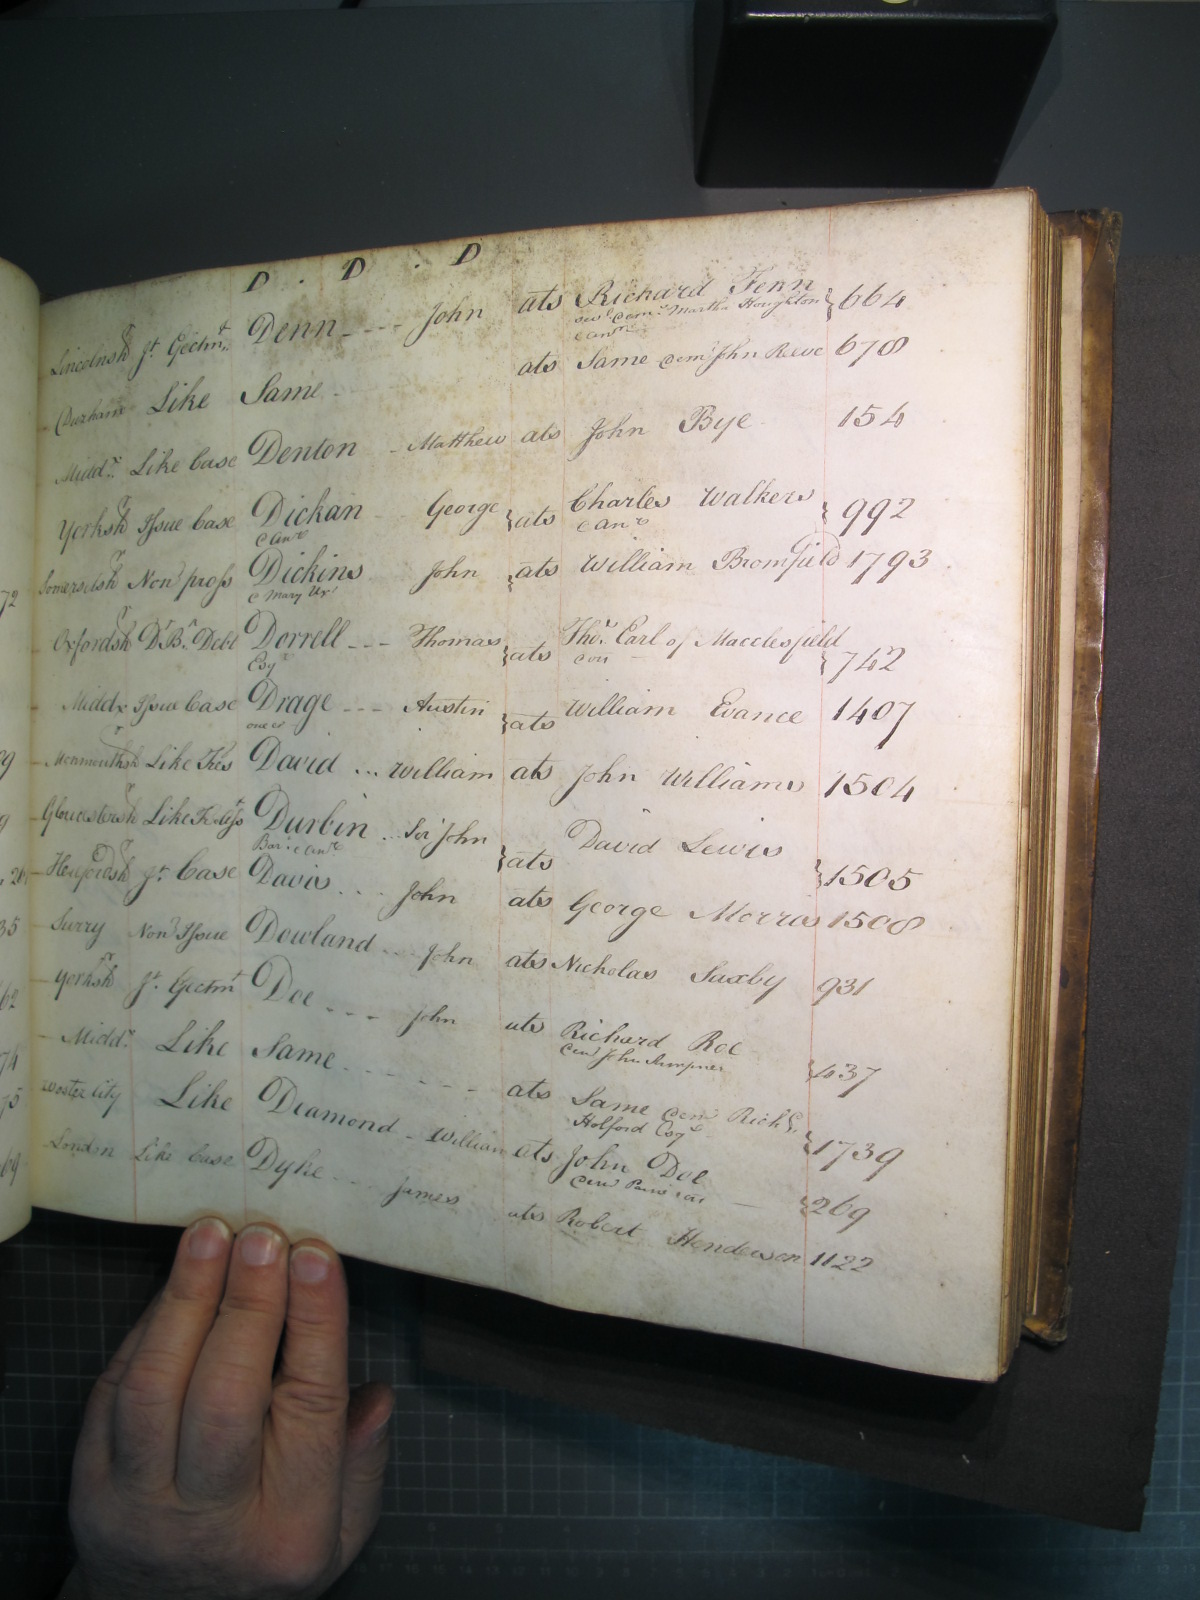 D . D . D
Lincolnshr Jt. Ejectmt. Denn ---- John ats Richard Fenn 664
demr. Martha Houghton
& anr.
Durham Like Same - ats Same dem John Reeve 678
Middx. Like Case Denton - Matthew ats John Bye 154
Yorkshr Issue Case Dickan George ats Charles Walkers 992
& anr. & anr.
Somersetshr Non pross Dickins John ats William Bromfield 1793
& Mary Ux.
Oxfordshr Debt Dorrell --- Thomas ats Thos. Earl of Macclesfield 742
Esqr.
Middx Issue Case Drage --- Austin ats William Evance 1407
one &c
Monmouthshr Like Tres David ... William ats John Williams 1504
Gloucestershr Like Durbin .. Sir John ats David Lewis 1505
Bart. & anr.
Herefordshr Jt. Case Davis ... John ats George Morris 1508
Surry Non Issue Dowland ... John ats Nicholas Saxby 931
Yorkshr Jt. Ejectmt Doe ---- John ats Richard Roe 437
John
Middx. Like Same ------- ats Same dem Richd. 1739
Holford Esqr.
Like Diamond - William ats John Doe 269
London Like Case Dyke ... James ats Robert Henderson 1122
72
09
9
26
35
62
74
75
69